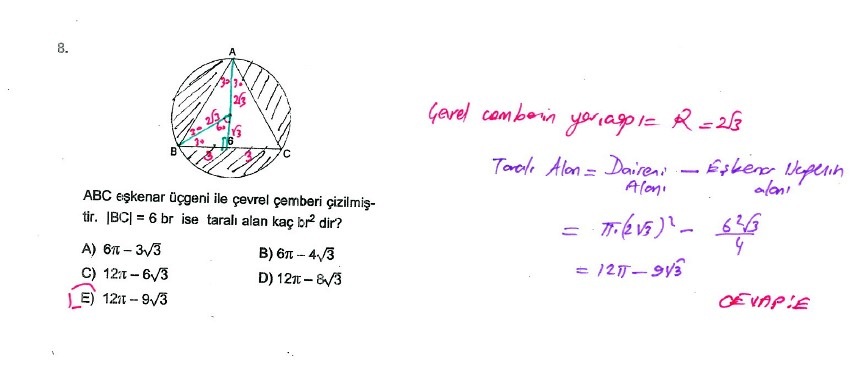 8.
A
30 30
2√3
2√3
60
√3
30
30
B
3
6
3
C
ABC eşkenar üçgeni ile çevrel çemberi çizilmiş-
tir. |BC| = 6 br ise taralı alan kaç br² dir?
A) 6π – 3√3 B) 6π – 4√3
C) 12π – 6√3 D) 12π – 8√3
E) 12π – 9√3
Çevrel çemberin yarıçapı = R = 2√3
Taralı Alan = Dairenin Alanı – Eşkenar üçgenin alanı
= π.(2√3)² – 6²√3 / 4
= 12π – 9√3
CEVAP: E